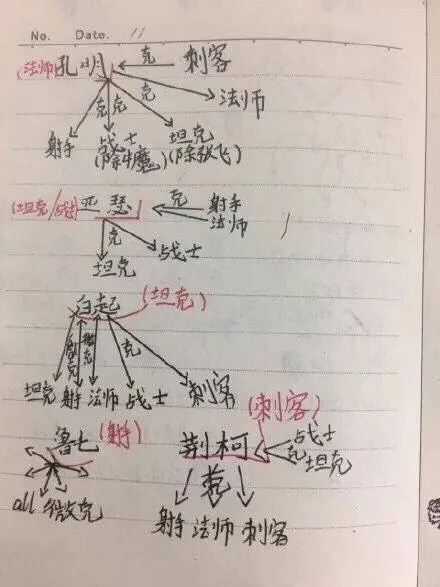 No. Date. 11
(法师)孔明 克 刺客
克 克 克 法师
射手 战士 坦克
(除牛魔)(除张飞)
(坦克/战士) 亚瑟 克 射手
法师
克 战士
坦克
白起 (坦克)
克
坦克 射手 法师 战士 刺客
鲁七 (射) 荆柯 (刺客)
克 战士
坦克
all 微克 克
射手 法师 刺客